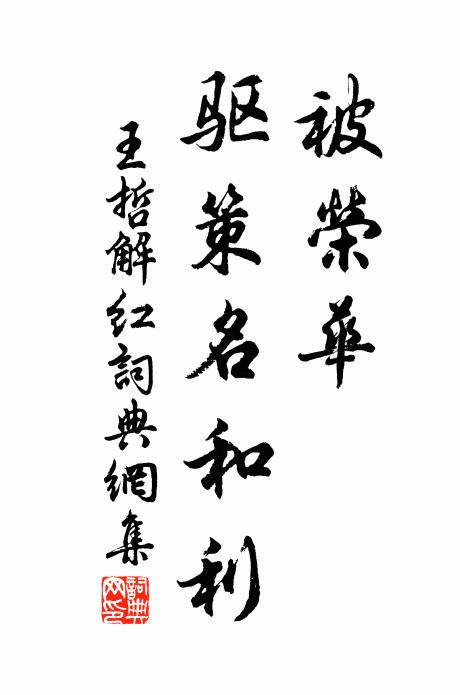 被榮華
驱策名和利
王哲解红詞典網集
詞典网印